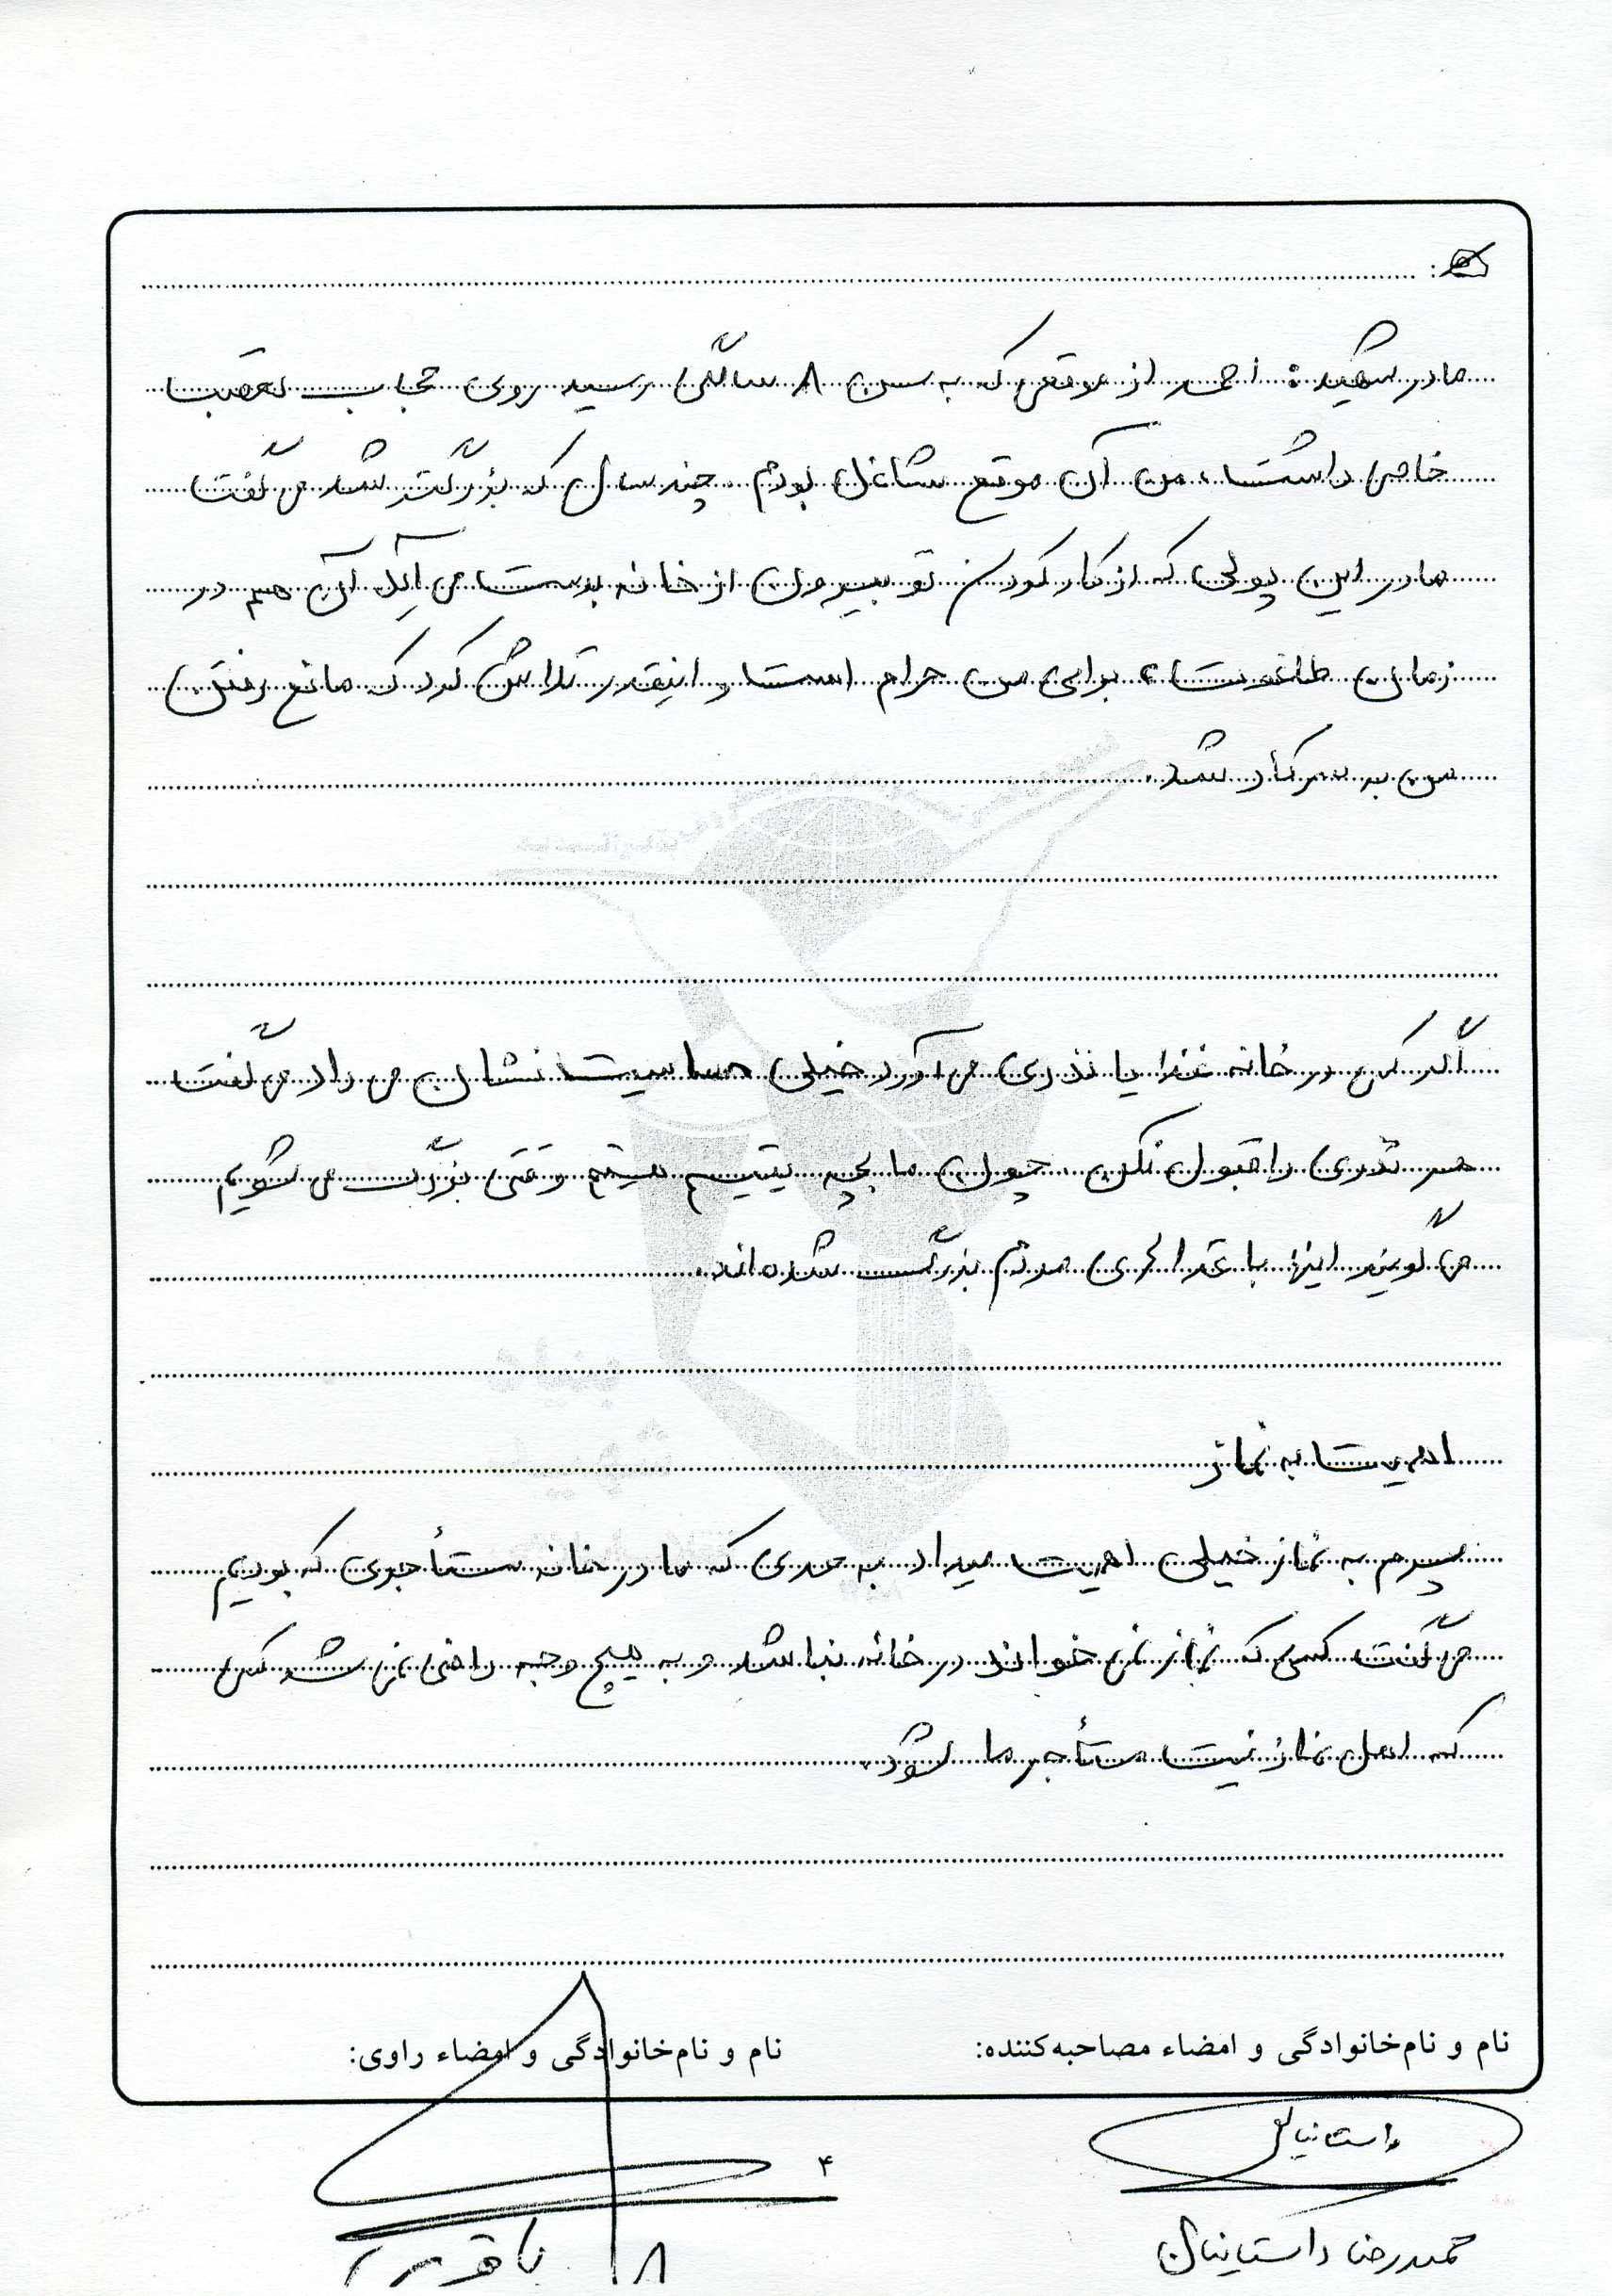 مادر شهید: احمد از موقعی که به سن ۸ سالگی رسید روی حجاب تعصب
خاصی داشت، من آن موقع شاغل بودم. چند سال که بزرگتر شد می گفت
مادر این پولی که از کار کردن تو بیرون از خانه بدست می آید آن هم در
زمان طاغوت، برای من حرام است و اینقدر تلاش کرد که مانع رفتن
من به سر کار شد.
اگر کسی در خانه غذا یا نذری می آورد خیلی حساسیت نشان می داد می گفت
هر نذری را قبول نکن. چون ما بچه یتیم هستیم وقتی بزرگ می شویم
می گویند اینها با نذری مردم بزرگ شده اند.
اهمیت به نماز
پسرم به نماز خیلی اهمیت میداد به حدی که ما در خانه مستأجری که بودیم
می گفت کسی که نماز نمی خواند در خانه نباشد و به هیچ وجه راضی نمی شد کسی
که اهل نماز نیست مستأجر ما شود.
نام و نام‌خانوادگی و امضاء مصاحبه‌کننده:
نام و نام‌خانوادگی و امضاء راوی:
۴
حمیدرضا داستانیان